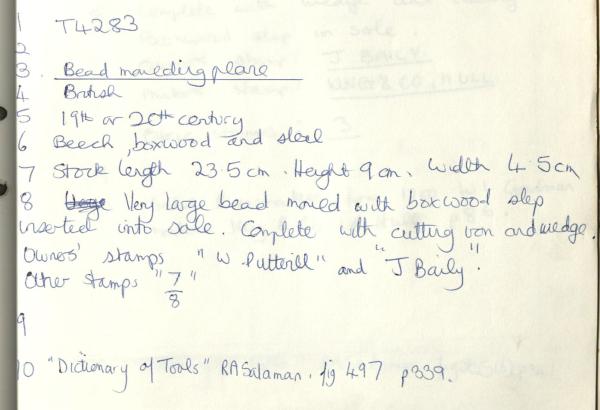 1 T4283
2
3. Bead moulding plane
4 British
5 19th or 20th century
6 Beech, boxwood and steel
7 Stock length 23.5 cm. Height 9 cm. Width 4.5 cm
8 Very large bead mould with boxwood slep
inserted into sole. Complete with cutting iron and wedge.
Owners' stamps "W Putterill" and "J Baily".
Other stamps "7/8"
9
10 "Dictionary of Tools" RA Salaman. fig 497 p339.